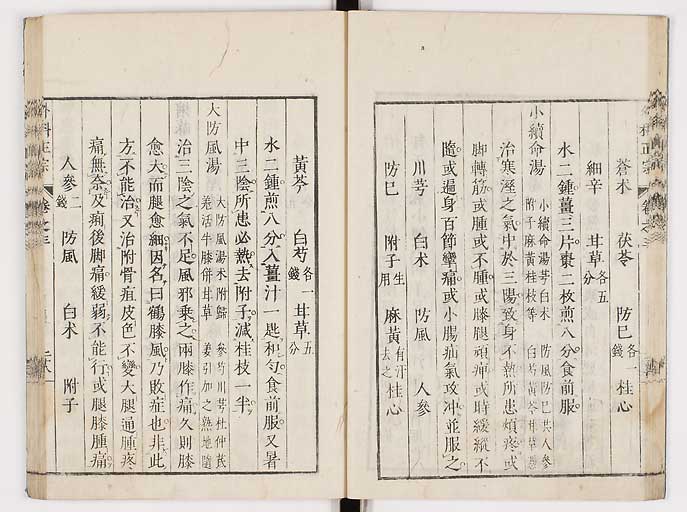 蒼朮 茯苓 防巳各一錢 桂心
細辛 甘草各五分
水二鍾薑三片棗二枚煎八分食前服
小續命湯 小續命湯芎白朮 防風防巳共人參
附子麻黃桂枝等 白芍黃芩甘草
治寒溼之氣中於三陽致身不熱所患煩疼或
脚轉筋或腫或不腫或膝腿頑痺或時緩縱不
隨或遍身百節攣痛或小腸疝氣攻冲並服之
川芎 白朮 防風 人參
防巳 附子生用 麻黃有汗去之 桂心
黃芩 白芍各一錢 甘草五分
水二鍾煎八分入薑汁一匙和勻食前服又暑
中三陰所患必熱去附子減桂枝一半
大防風湯 大防風湯朮附歸 參芍川芎杜仲芪
羗活牛膝併甘草 姜引加之熟地隨
治三陰之氣不足風邪乘之兩膝作痛久則膝
愈大而腿愈細因名曰鶴膝風乃敗症也非此
方不能治又治附骨疽皮色不變大腿通腫疼
痛無奈及痢後脚痛緩弱不能行或腿膝腫痛
人參二錢 防風 白朮 附子
外科正宗 卷之三